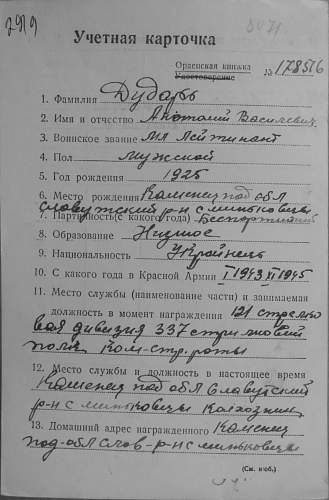 2919
Учетная карточка
Орденская книжка
Удостоверение № 178516
1. Фамилия Дударь
2. Имя и отчество Анатолий Васильевич
3. Воинское звание Мл Лейтинант
4. Пол мужской
5. Год рождения 1925
6. Место рождения Каменец под обл
Славутский р-н с миньковцы
7. Партийность (с какого года) Беспортийный
8. Образование Низшое
9. Национальность Украйнець
10. С какого года в Красной Армии I 1943 VI 1945
11. Место службы (наименование части) и занимаемая
должность в момент награждения 121 стрелко
вая дивизия 337 стрилковий
полк ком-стр.роты
12. Место службы и должность в настоящее время
Каменец под обл Славутский
р-н с миньковцы колхозник
13. Домашний адрес награжденного Каменец
под-обл слав-р-н с миньковцы
(См. на об.)